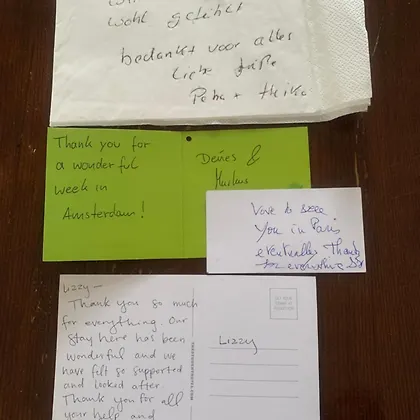 wohl gefühlt
bedankt voor alles
liebe Grüße
Peha + Heike
Thank you for
a wonderful
week in
Amsterdam!
&
Markus
Love to see
you in Paris
eventually Thanks
for everything
Lizzy—
Thank you so much
for everything. Our
stay here has been
wonderful and we
have felt so supported
and looked after.
Thank you for all
your help and
Lizzy